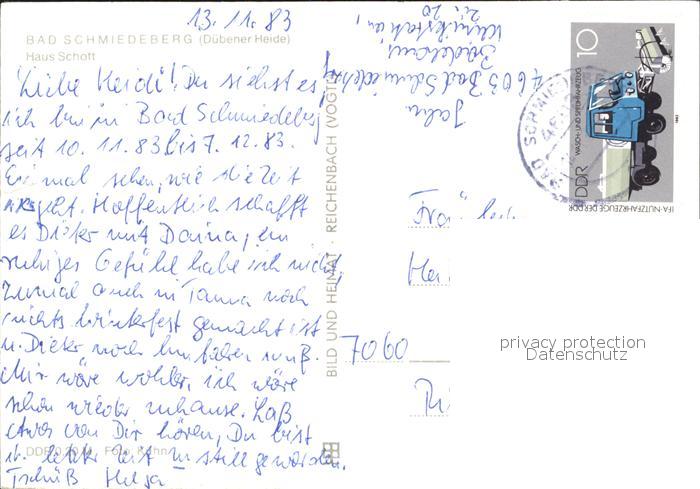 13. 11. 83
BAD SCHMIEDEBERG (Dübener Heide)
Haus Schott
Liebe Heidi! Du siehst es,
ich bin in Bad Schmiedeberg
seit 10. 11. 83 bis 7. 12. 83.
Einmal sehen, wie die Zeit
vergeht. Hoffentlich schafft
es Dieter mit Daina, ein
ruhiges Gefühl habe ich nicht,
zumal auch in Tanna noch
nichts winterfest gemacht ist
u. Dieter noch hinfahren muß.
Mir wäre wohler, ich wäre
schon wieder zuhause. Laß
etwas von Dir hören, Du bist
i. letzter Zeit zu still geworden.
Tschüß Helga
DDR Foto: Kühn
BILD UND HEIMAT · REICHENBACH (VOGTL
Jahn
4603 Bad Schmiedeberg
Badehaus,
Klinikstation,
Zi. 20
10
DDR
WASCH- UND SPRÜHFAHRZEUG
IFA-NUTZFAHRZEUGE DER DDR
1983
Frau
7060
privacy protection
Datenschutz